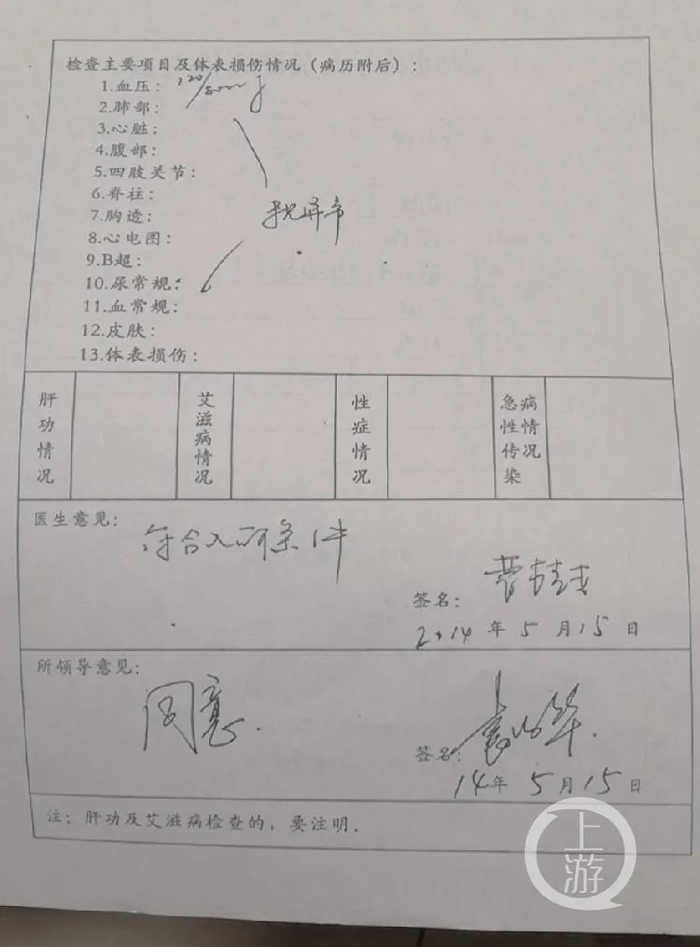 检查主要项目及体表损伤情况（病历附后）：
1.血压： 120/80mmHg
2.肺部：
3.心脏：
4.腹部：
5.四肢关节：
6.脊柱：
7.胸透：
8.心电图：
9.B超：
10.尿常规：
11.血常规：
12.皮肤：
13.体表损伤：
肝功情况
艾滋病情况
性症情况
急性传染病情况
医生意见：
符合入所条件
签名：
2014年5月15日
所领导意见：
同意.
签名：
14年5月15日
注：肝功及艾滋病检查的，要注明.
上游